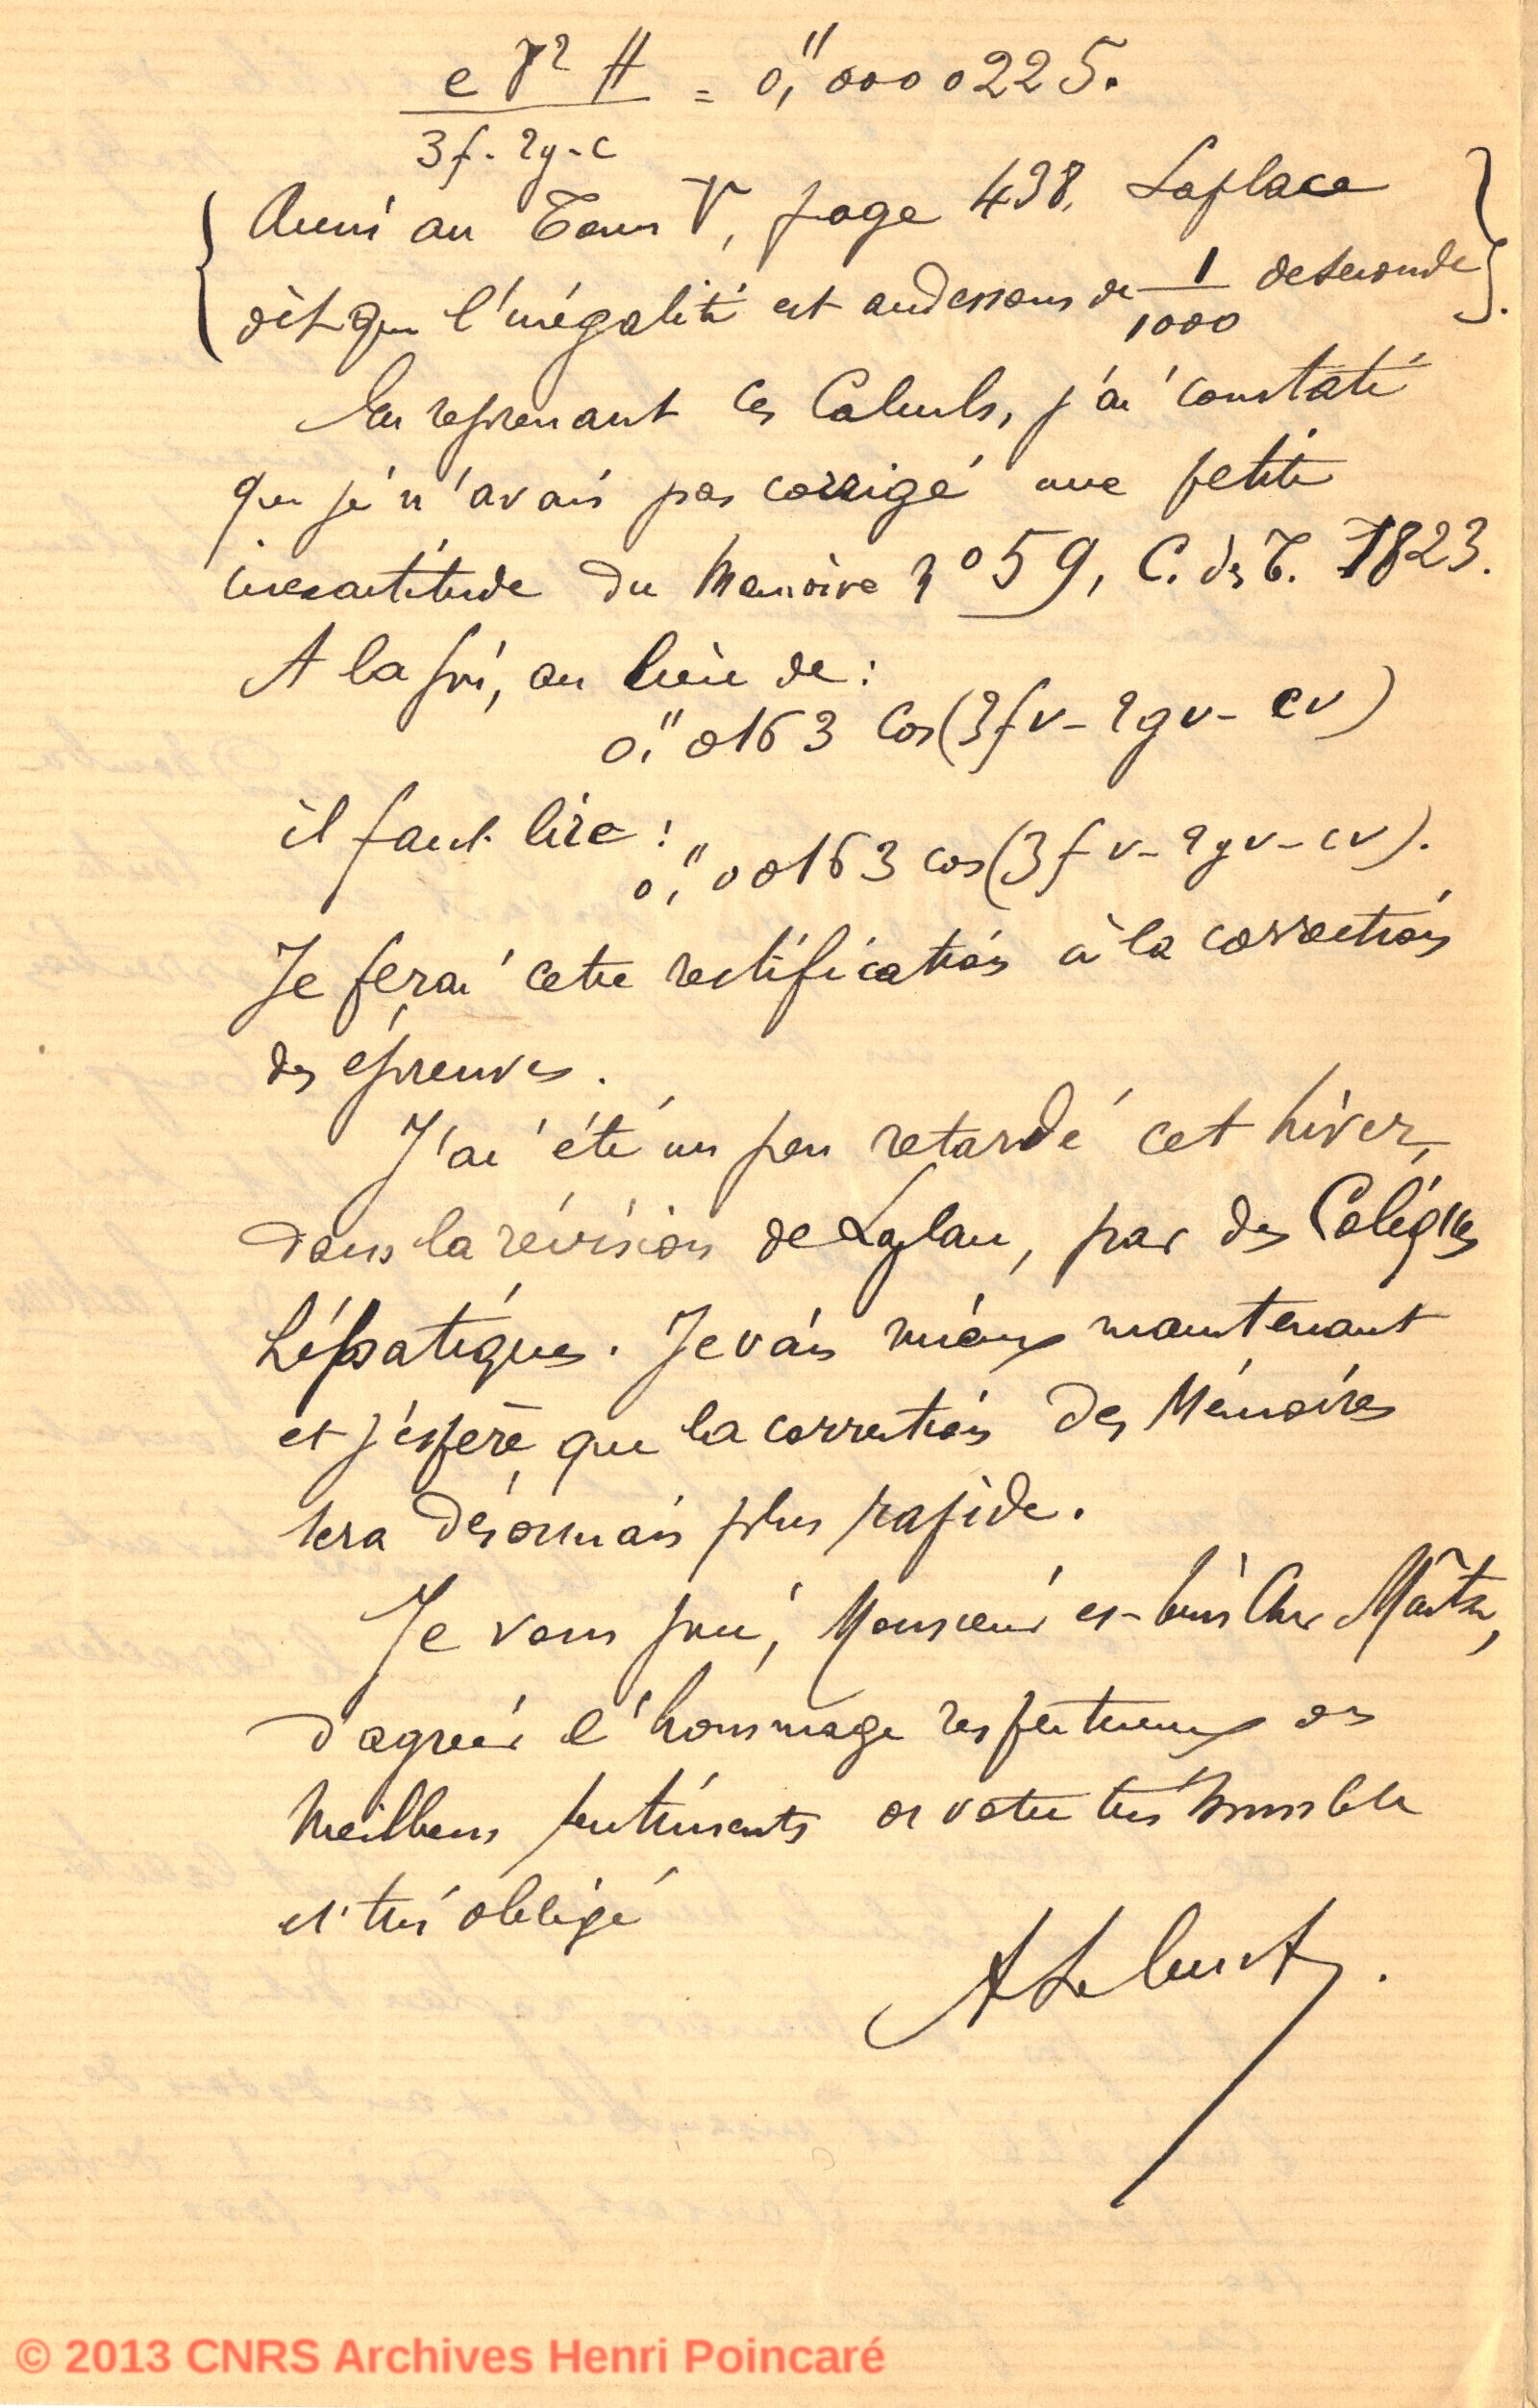 e γ² H / 3f - 2g - c = 0,"0000225.
{ Aussi au Tome V, page 438, Laplace
dit que l'inégalité est audessous de 1/1000 de seconde }.
En reprenant ces Calculs, j'ai constaté
que je n'avais pas corrigé une petite
inexactitude du Mémoire no 59, C. des T. 1823.
A la fin, au lieu de :
0,"0163 cos(3fv - 2gv - cv)
il faut lire :
0,"00163 cos(3fv - 2gv - cv).
Je ferai cette rectification à la correction
des épreuves.
J'ai été un peu retardé cet hiver,
dans la révision de Laplace, par des Coliques
hépatiques. Je vais mieux maintenant
et j'espère que la correction des Mémoires
sera désormais plus rapide.
Je vous prie, Monsieur et bien Cher Maître,
d'agréer l'hommage respectueux des
meilleurs sentiments de votre très humble
et très obligé
A Lebeuf.
© 2013 CNRS Archives Henri Poincaré